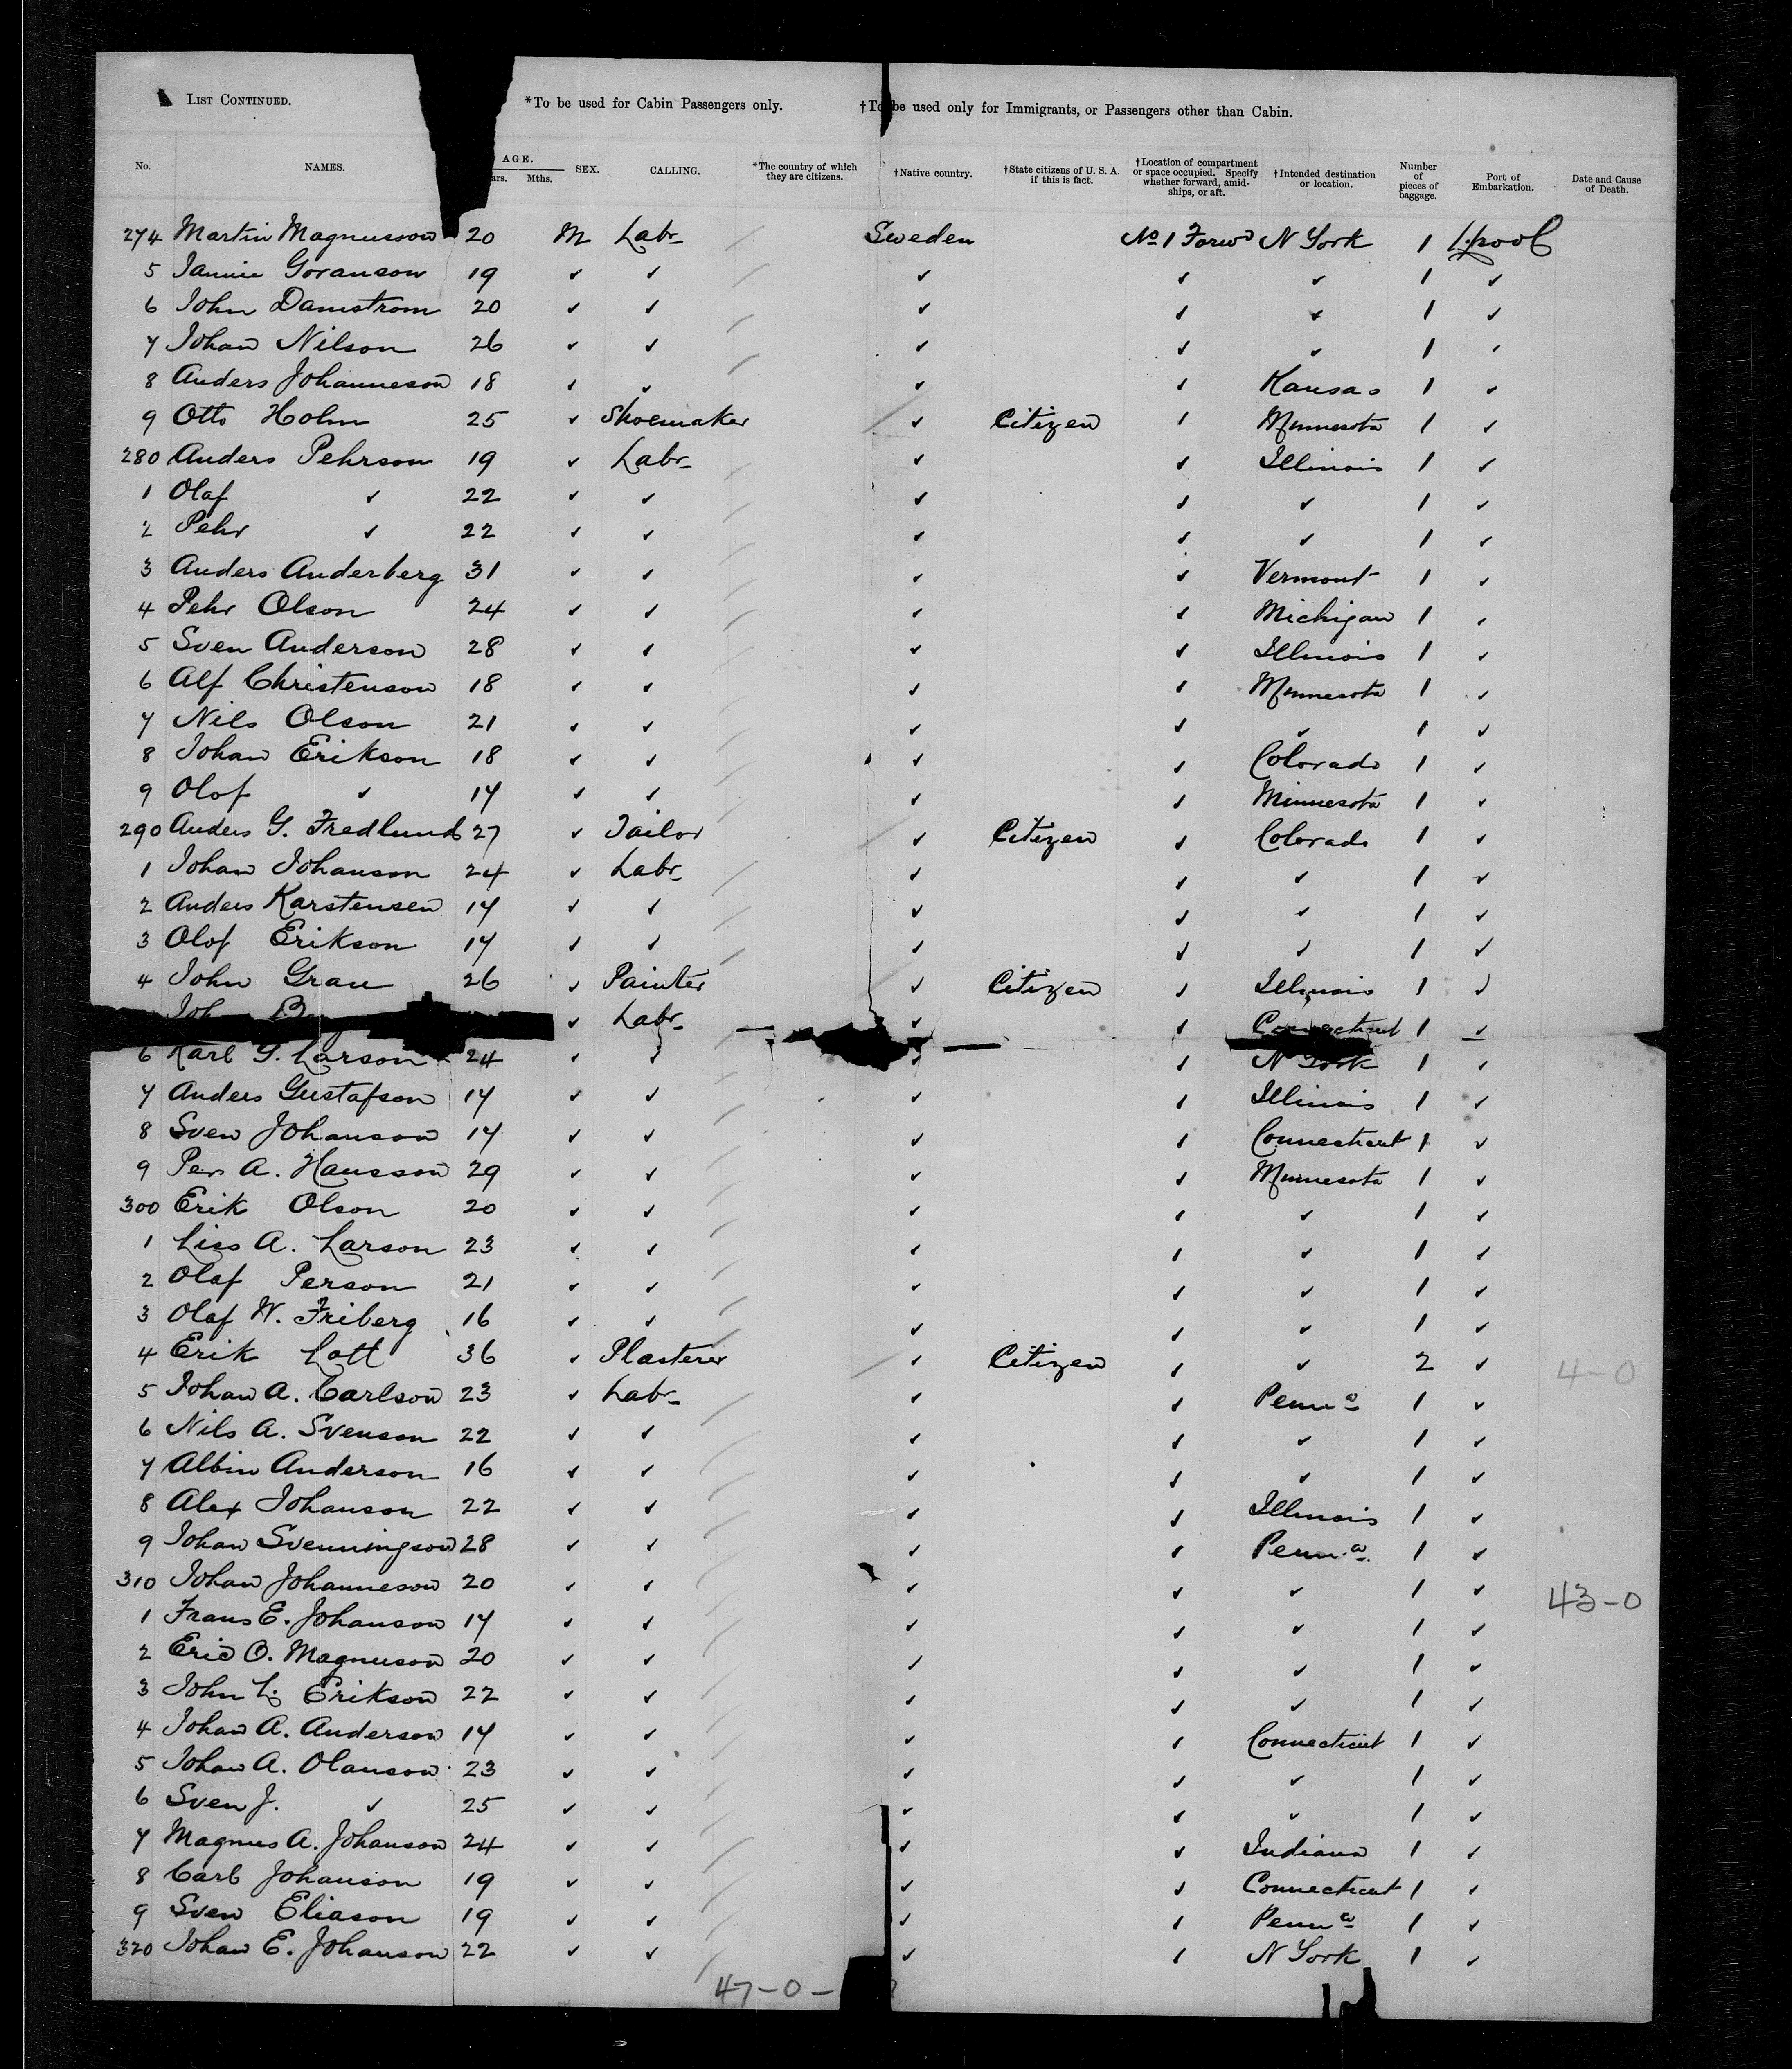 LIST CONTINUED. *To be used for Cabin Passengers only. †To be used only for Immigrants, or Passengers other than Cabin.
No. NAMES. AGE. ars. Mths. SEX. CALLING. *The country of which they are citizens. †Native country. †State citizens of U. S. A. if this is fact. †Location of compartment or space occupied. Specify whether forward, amidships, or aft. †Intended destination or location. Number of pieces of baggage. Port of Embarkation. Date and Cause of Death.
274 Martin Magnusson 20 M Labr Sweden No 1 Forwd N York 1 L.pool
5 Goranson 19 ✓ ✓ ✓ ✓ ✓ 1 ✓
6 John Damstrom 20 ✓ ✓ ✓ ✓ ✓ 1 ✓
7 Johan Nilson 26 ✓ ✓ ✓ ✓ ✓ 1 ✓
8 Anders Johanneson 18 ✓ ✓ ✓ ✓ Kansas 1 ✓
9 Otto Holm 25 ✓ Shoemaker ✓ Citizen ✓ Minnesota 1 ✓
280 Anders Pehrson 19 ✓ Labr ✓ ✓ Illinois 1 ✓
1 Olaf ✓ 22 ✓ ✓ ✓ ✓ ✓ 1 ✓
2 Pehr ✓ 22 ✓ ✓ ✓ ✓ ✓ 1 ✓
3 Anders Anderberg 31 ✓ ✓ ✓ ✓ Vermont 1 ✓
4 Pehr Olson 24 ✓ ✓ ✓ ✓ Michigan 1 ✓
5 Sven Anderson 28 ✓ ✓ ✓ ✓ Illinois 1 ✓
6 Alf Christenson 18 ✓ ✓ ✓ ✓ Minnesota 1 ✓
7 Nils Olson 21 ✓ ✓ ✓ ✓ ✓ 1 ✓
8 Johan Erikson 18 ✓ ✓ ✓ ✓ Colorado 1 ✓
9 Olof ✓ 17 ✓ ✓ ✓ ✓ Minnesota 1 ✓
290 Anders G. Fredlund 27 ✓ Tailor ✓ Citizen ✓ Colorado 1 ✓
1 Johan Johanson 24 ✓ Labr ✓ ✓ ✓ 1 ✓
2 Anders Karstensen 17 ✓ ✓ ✓ ✓ ✓ 1 ✓
3 Olof Erikson 17 ✓ ✓ ✓ ✓ ✓ 1 ✓
4 John Grau 26 ✓ Painter ✓ Citizen ✓ Illinois 1 ✓
✓ Labr ✓ ✓ Connecticut 1 ✓
6 Karl G. Larson 24 ✓ ✓ ✓ ✓ N York 1 ✓
7 Anders Gustafson 17 ✓ ✓ ✓ ✓ Illinois 1 ✓
8 Sven Johanson 17 ✓ ✓ ✓ ✓ Connecticut 1 ✓
9 Per A. Hansson 29 ✓ ✓ ✓ ✓ Minnesota 1 ✓
300 Erik Olson 20 ✓ ✓ ✓ ✓ ✓ 1 ✓
1 Liss A. Larson 23 ✓ ✓ ✓ ✓ ✓ 1 ✓
2 Olaf Person 21 ✓ ✓ ✓ ✓ ✓ 1 ✓
3 Olaf W. Friberg 16 ✓ ✓ ✓ ✓ ✓ 1 ✓
4 Erik Lott 36 ✓ Plasterer ✓ Citizen ✓ ✓ 2 ✓ 4-0
5 Johan A. Carlson 23 ✓ Labr ✓ ✓ Penna 1 ✓
6 Nils A. Svenson 22 ✓ ✓ ✓ ✓ ✓ 1 ✓
7 Albin Anderson 16 ✓ ✓ ✓ ✓ ✓ 1 ✓
8 Alex Johanson 22 ✓ ✓ ✓ ✓ Illinois 1 ✓
9 Johan Svenningson 28 ✓ ✓ ✓ ✓ Penna 1 ✓
310 Johan Johanneson 20 ✓ ✓ ✓ ✓ ✓ 1 ✓ 43-0
1 Frans E. Johanson 17 ✓ ✓ ✓ ✓ ✓ 1 ✓
2 Eric O. Magnuson 20 ✓ ✓ ✓ ✓ ✓ 1 ✓
3 John L. Erikson 22 ✓ ✓ ✓ ✓ ✓ 1 ✓
4 Johan A. Anderson 17 ✓ ✓ ✓ ✓ Connecticut 1 ✓
5 Johan A. Olanson 23 ✓ ✓ ✓ ✓ ✓ 1 ✓
6 Sven J. ✓ 25 ✓ ✓ ✓ ✓ ✓ 1 ✓
7 Magnus A. Johanson 24 ✓ ✓ ✓ ✓ Indiana 1 ✓
8 Carl Johanson 19 ✓ ✓ ✓ ✓ Connecticut 1 ✓
9 Sven Eliason 19 ✓ ✓ ✓ ✓ Penna 1 ✓
320 Johan E. Johanson 22 ✓ ✓ ✓ ✓ N York 1 ✓
47-0-